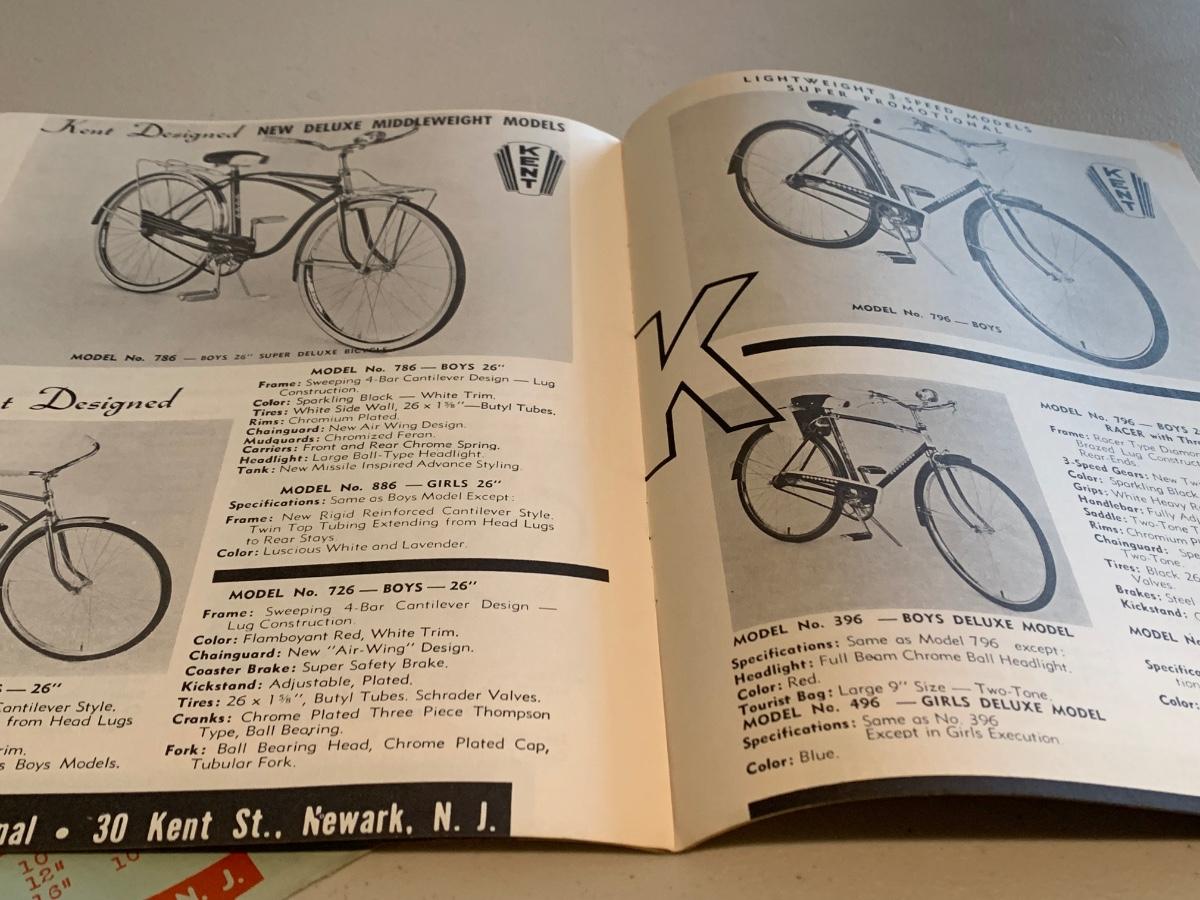 Kent Designed NEW DELUXE MIDDLEWEIGHT MODELS
KENT
MODEL No. 786 — BOYS 26" SUPER DELUXE BICYCLE
Designed
MODEL No. 786 — BOYS 26"
Frame: Sweeping 4-Bar Cantilever Design — Lug
Construction.
Color: Sparkling Black — White Trim.
Tires: White Side Wall, 26 x 1⅝"—Butyl Tubes.
Rims: Chromium Plated.
Chainguard: New Air Wing Design.
Mudquards: Chromized Feran.
Carriers: Front and Rear Chrome Spring.
Headlight: Large Ball-Type Headlight.
Tank: New Missile Inspired Advance Styling.
MODEL No. 886 — GIRLS 26"
Specifications: Same as Boys Model Except:
Frame: New Rigid Reinforced Cantilever Style.
Twin Top Tubing Extending from Head Lugs
to Rear Stays.
Color: Luscious White and Lavender.
MODEL No. 726 — BOYS — 26"
Frame: Sweeping 4-Bar Cantilever Design —
Lug Construction.
Color: Flamboyant Red, White Trim.
Chainguard: New "Air-Wing" Design.
Coaster Brake: Super Safety Brake.
Kickstand: Adjustable, Plated.
Tires: 26 x 1⅝", Butyl Tubes. Schrader Valves.
Cranks: Chrome Plated Three Piece Thompson
Type, Ball Bearing.
Fork: Ball Bearing Head, Chrome Plated Cap,
Tubular Fork.
— 26"
Cantilever Style.
from Head Lugs
Boys Models.
• 30 Kent St., Newark, N. J.
10
12"
16"
10
N. J.
LIGHTWEIGHT 3-SPEED MODELS
SUPER PROMOTIONAL
KENT
MODEL No. 796 — BOYS
K
MODEL No. 796 — BOYS
RACER with
Frame: Racer Type
Brazed Lug
Rear-Ends.
3-Speed Gears: New
Color: Sparkling
Grips: White Heavy
Handlebar: Fully
Saddle: Two-Tone
Rims: Chromium
Chainguard:
Two-Tone.
Tires: Black 26
Valves.
Brakes: Steel
Kickstand:
MODEL
Color:
MODEL No. 396 — BOYS DELUXE MODEL
Specifications: Same as Model 796 except:
Headlight: Full Beam Chrome Ball Headlight.
Color: Red.
Tourist Bag: Large 9" Size — Two-Tone.
MODEL No. 496 — GIRLS DELUXE MODEL
Specifications: Same as No. 396
Except in Girls Execution
Color: Blue.